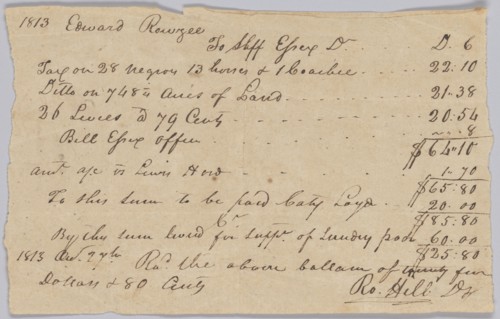 1813 Edward Rowzee
To Shff Essex Dr. D. C
Tax on 28 negroes 13 horses & 1 Coachee 22.10
Ditto on 748½ Acres of Land 21.38
26 Levies @ 79 Cents 20.54
Bell Essex office 8
$64.10
amt. age vs Lewis Hord 1.70
$65.80
To this sum to be paid Caty Loyd 20.00
Cr $85.80
By this sum levied for suppt. of Sundry poor 60.00
$25.80
1813 27th Recd the above ballance of twenty five
Dollars & 80 Cents Ro. Hill Ds